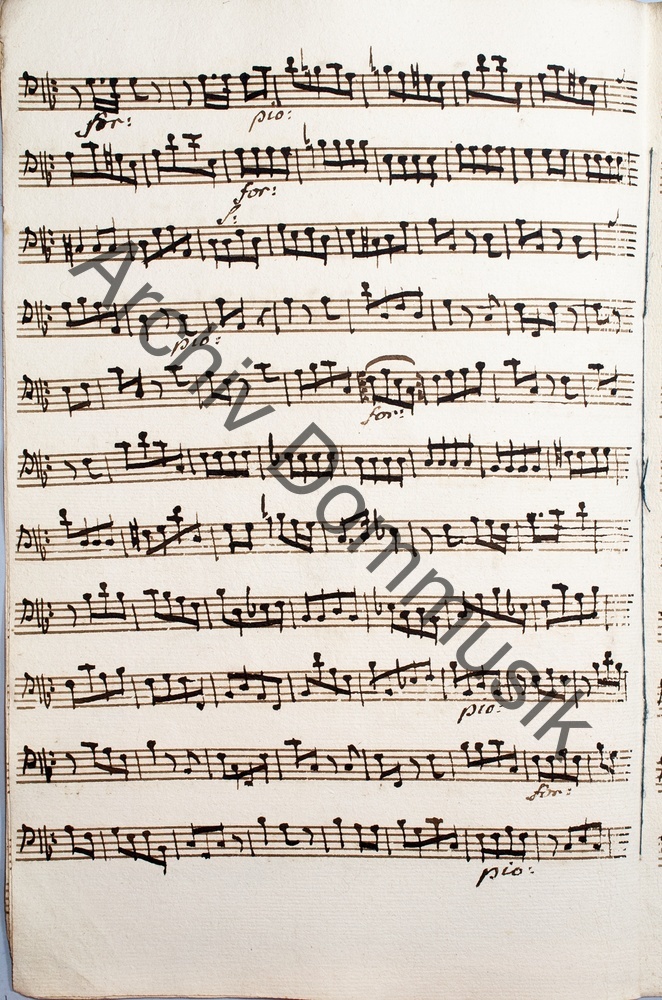 for: pio:
for:
f:
pio:
for:
pio:
for:
pio:
Archiv Dommusik